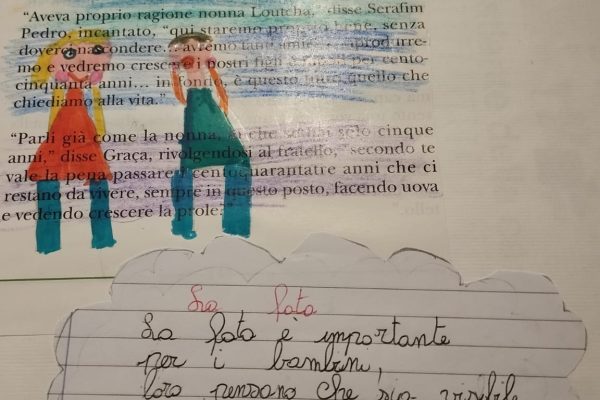 “Aveva proprio ragione nonna Loutcha,” disse Serafim
Pedro, incantato, “qui staremo proprio bene, senza
doverci nascondere... avremo tanti amici... riprodurre-
mo e vedremo crescere i nostri figli per cento-
cinquanta anni... in fondo, è questo tutto quello che
chiediamo alla vita.”
“Parli già come la nonna, anche se hai solo cinque
anni,” disse Graça, rivolgendosi al fratello, “secondo te
vale la pena passare i centoquarantatre anni che ci
restano da vivere, sempre in questo posto, facendo uova
e vedendo crescere la prole.”
La fata
La fata è importante
per i bambini,
loro pensano che sia visibile